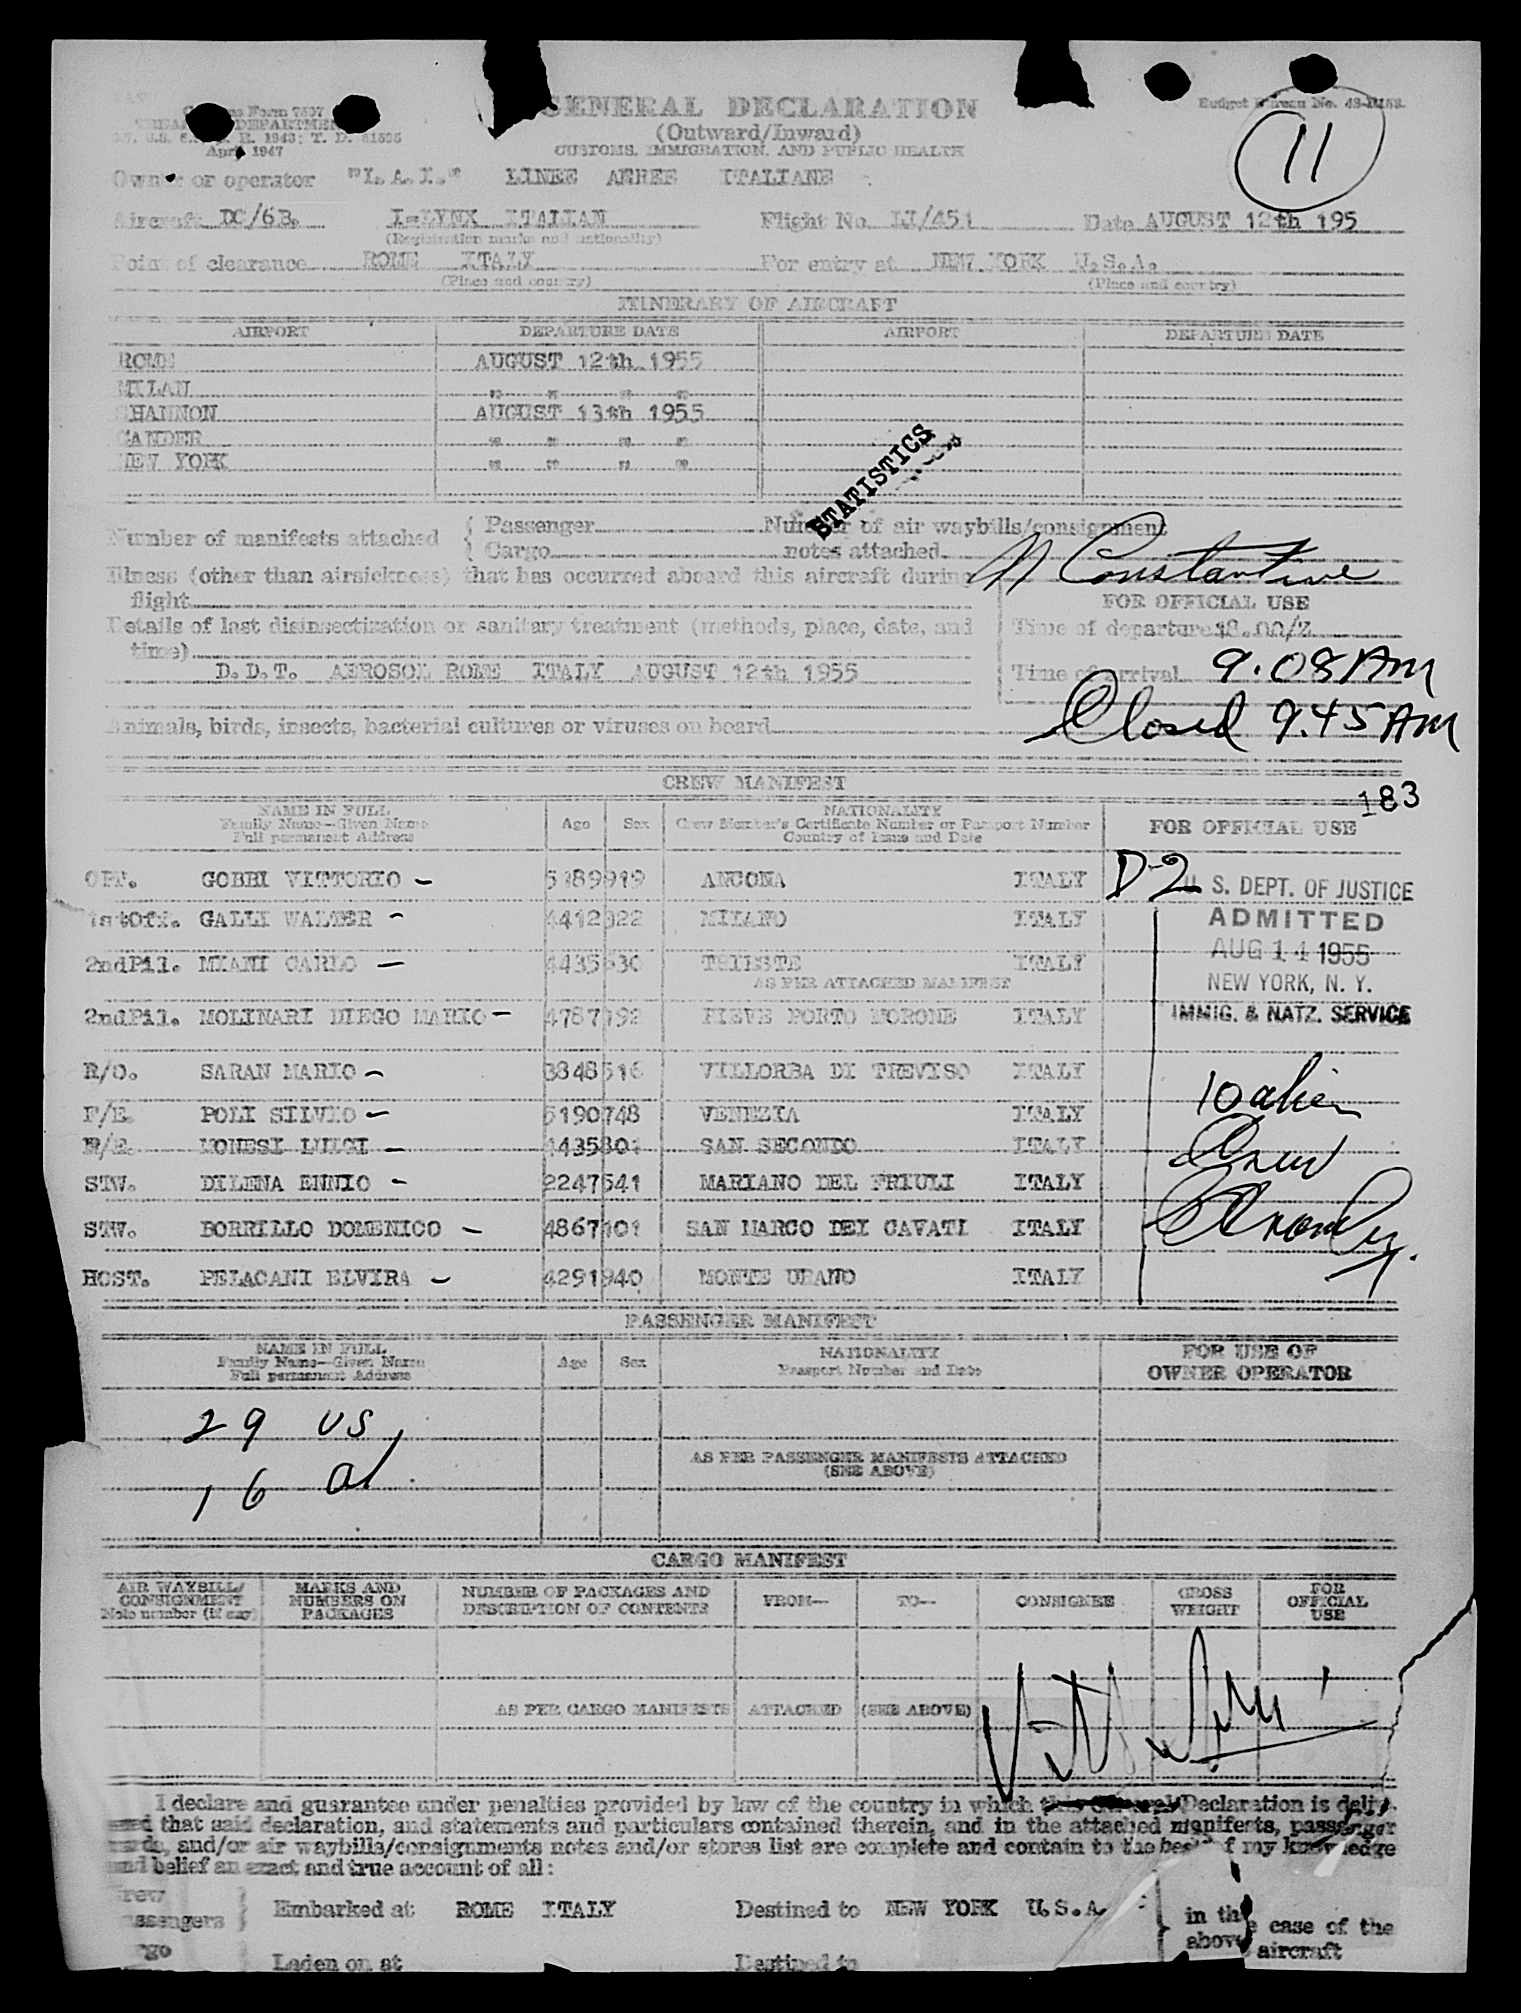 Customs Form 7507
TREASURY DEPARTMENT
April 1947
GENERAL DECLARATION
(Outward/Inward)
CUSTOMS, IMMIGRATION, AND PUBLIC HEALTH
Budget Bureau No.
11
Owner or operator "L.A.I." LINEE AEREE ITALIANE
Aircraft DC/6B. I-LYNX ITALIAN Flight No. LI/451 Date AUGUST 12th 195
(Registration marks and nationality)
Point of clearance ROME ITALY For entry at NEW YORK U.S.A.
(Place and country) (Place and country)
ITINERARY OF AIRCRAFT
AIRPORT DEPARTURE DATE AIRPORT DEPARTURE DATE
ROME AUGUST 12th 1955
MILAN " " " "
SHANNON AUGUST 13th 1955
GANDER " " " "
NEW YORK " " " "
STATISTICS
Number of manifests attached { Passenger Number of air waybills/consignment
{ Cargo notes attached
N Constantine
Illness (other than airsickness) that has occurred aboard this aircraft during
flight
FOR OFFICIAL USE
Details of last disinsectization or sanitary treatment (methods, place, date, and
time)
Time of departure 18.00/Z
D.D.T. AEROSOL ROME ITALY AUGUST 12th 1955
Time of arrival 9.08 AM
Closed 9.45 AM
Animals, birds, insects, bacterial cultures or viruses on board
CREW MANIFEST
183
NAME IN FULL
Family Name—Given Name
Full permanent Address
Age Sex
NATIONALITY
Crew Member's Certificate Number or Passport Number
Country of Issue and Date
FOR OFFICIAL USE
GOBBI VITTORIO - 5189919 ANCONA ITALY
1stOff. GALLI WALTER - 4412322 MILANO ITALY
2ndPil. MIANI CARLO - TRIESTE ITALY
AS PER ATTACHED MANIFEST
2ndPil. MOLINARI DIEGO MARIO - 4787192 PIEVE PORTO MORONE ITALY
R/O. SARAN MARIO - 3848516 VILLORBA DI TREVISO ITALY
F/E. POLI SILVIO - 5190748 VENEZIA ITALY
MONESI LUIGI - 4435801 SAN SECONDO ITALY
STW. DILENA ENNIO - 2247541 MARIANO DEL FRIULI ITALY
STW. BORRILLO DOMENICO - 4867101 SAN MARCO DEI CAVATI ITALY
HOST. PELACANI ELVIRA - 4291940 MONTE URANO ITALY
D-2
U. S. DEPT. OF JUSTICE
ADMITTED
AUG 14 1955
NEW YORK, N. Y.
IMMIG. & NATZ. SERVICE
10 alien
Crew
PASSENGER MANIFEST
NAME IN FULL
Family Name—Given Name
Full permanent Address
Age Sex
NATIONALITY
Passport Number and Date
FOR USE OF
OWNER OPERATOR
29 US
16 al.
AS PER PASSENGER MANIFESTS ATTACHED
(SEE ABOVE)
CARGO MANIFEST
AIR WAYBILL/
CONSIGNMENT
Note number (if any)
MARKS AND
NUMBERS ON
PACKAGES
NUMBER OF PACKAGES AND
DESCRIPTION OF CONTENTS
FROM— TO— CONSIGNEE
GROSS
WEIGHT
FOR
OFFICIAL
USE
AS PER CARGO MANIFESTS ATTACHED (SEE ABOVE)
I declare and guarantee under penalties provided by law of the country in which this General Declaration is
and that said declaration, and statements and particulars contained therein, and in the attached manifests, passenger
and/or air waybills/consignments notes and/or stores list are complete and contain to the best of my knowledge
and belief an exact and true account of all:
Crew
Passengers } Embarked at ROME ITALY Destined to NEW YORK U.S.A. } in the case of the
above aircraft
Cargo Laden on at Destined to